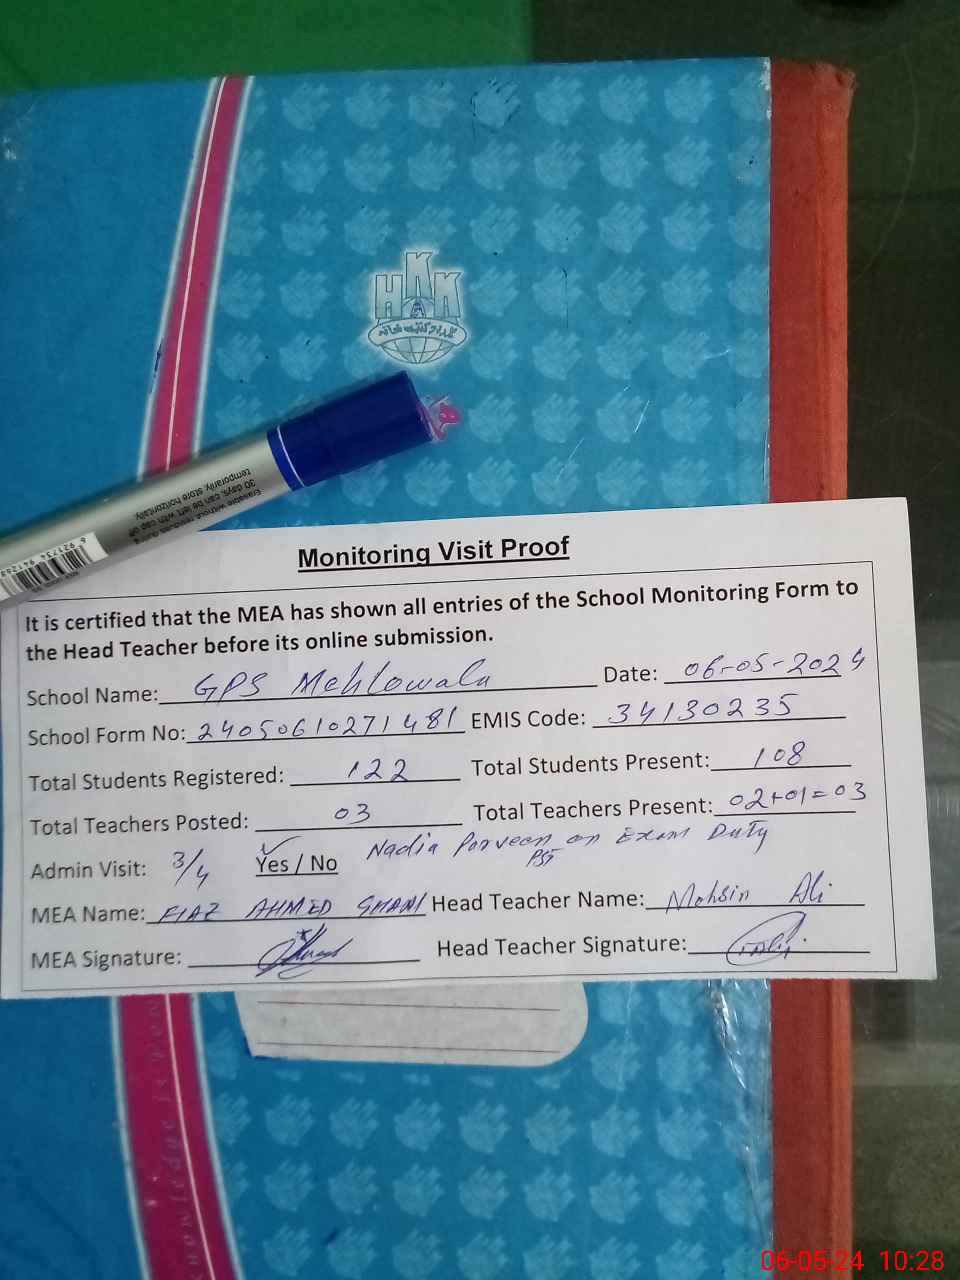 HKK
ہمدرد کتب خانہ
Erasable without residues during
30 days, can be left with cap off
temporarily. store horizontally.
6 921734 941268
Monitoring Visit Proof
It is certified that the MEA has shown all entries of the School Monitoring Form to
the Head Teacher before its online submission.
School Name: GPS Mehlowala Date: 06-05-2024
School Form No: 24050610271481 EMIS Code: 34130235
Total Students Registered: 122 Total Students Present: 108
Total Teachers Posted: 03 Total Teachers Present: 02+01=03
Admin Visit: 3/4 Yes / No Nadia Parveen on Exam Duty
PST
MEA Name: FIAZ AHMED GHANI Head Teacher Name: Mohsin Ali
MEA Signature: Head Teacher Signature:
06-05-24 10:28